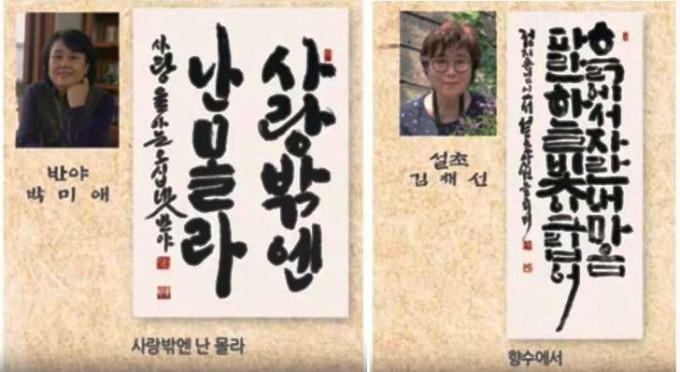 사랑밖엔
난 모올라
사랑을 아는 오십넷 반야
반야
박미애
사랑밖엔 난 몰라
흙에서 자란 내 마음
파란 하늘빛이 그립어
설초
김채선
향수에서